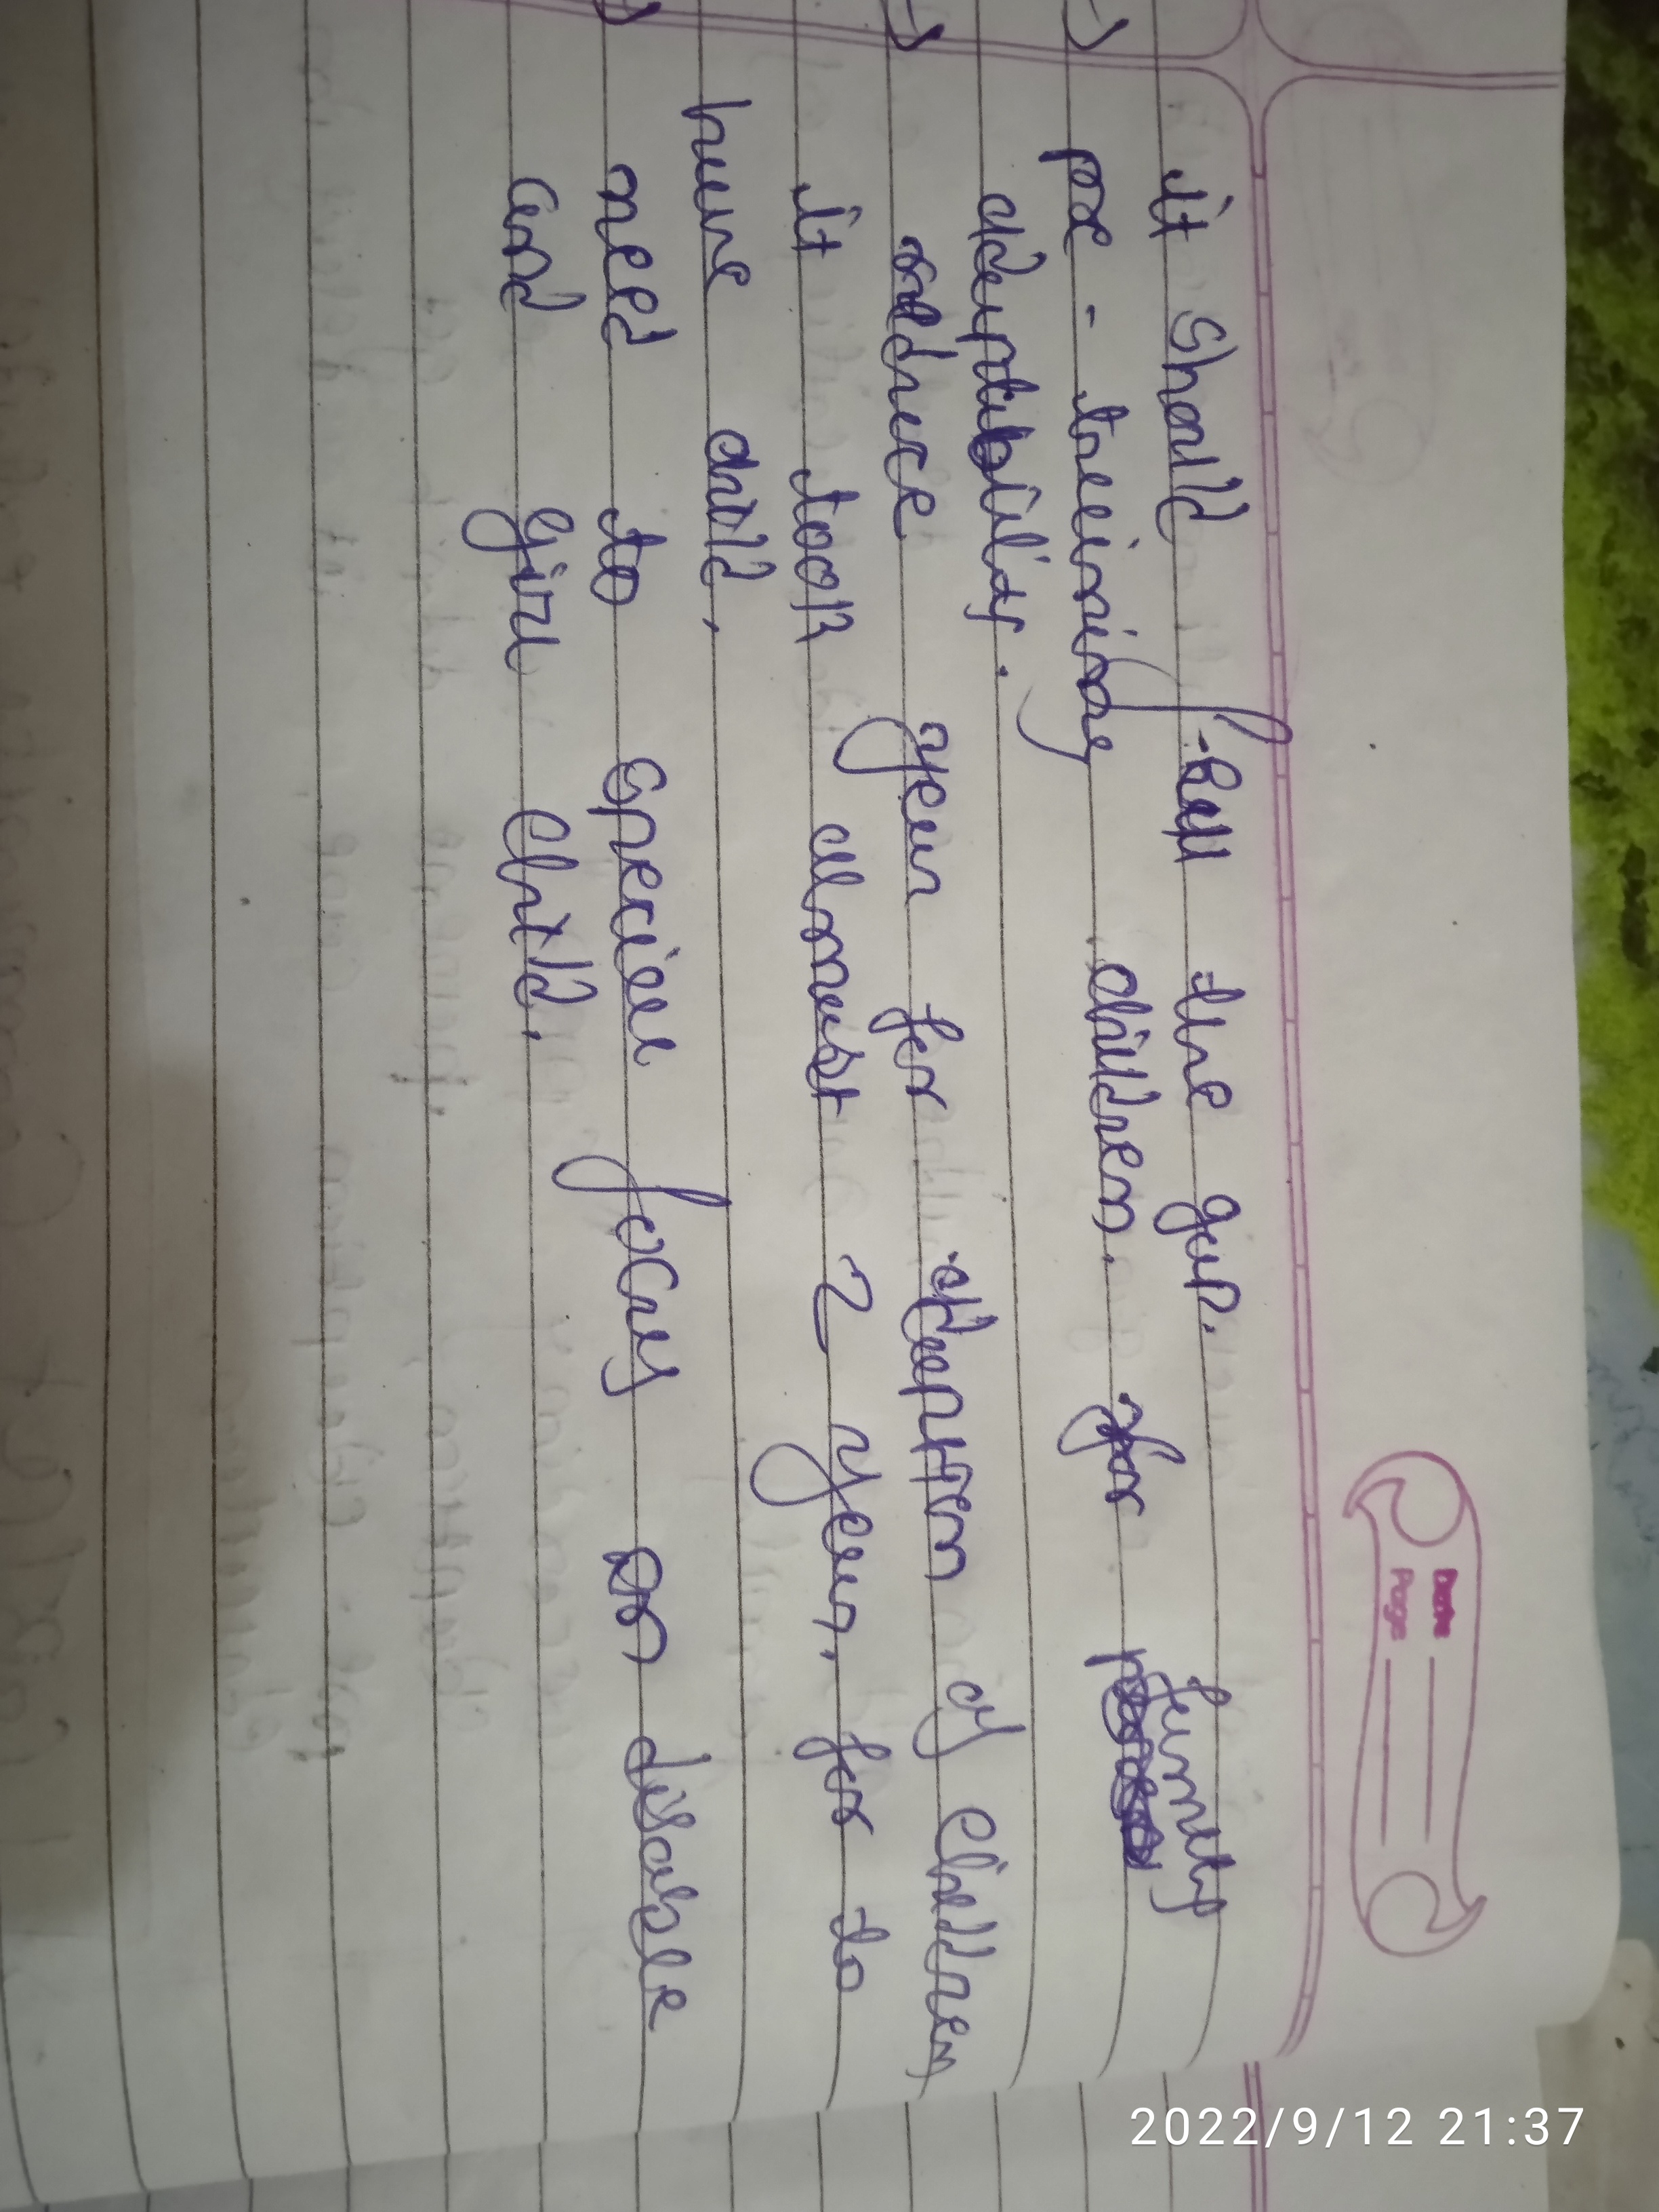 Date
Page
it should full the gap.
-) pre - treining children. for family
adeptability.
-) reduce year for adeptem of children
it took almost 2 year, for to
have child,
-) need to speciel focus on disable
and girl child.
2022/9/12 21:37